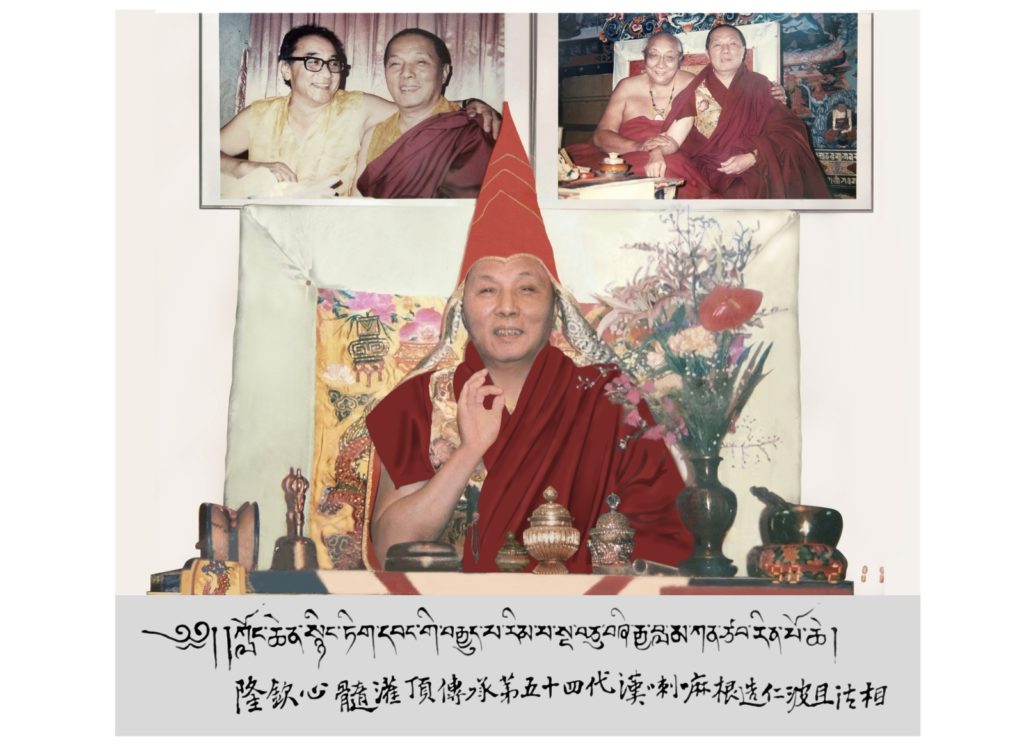 ༄༅། །ཀློང་ཆེན་སྙིང་ཏིག་དབང་གི་བརྒྱུད་པ་རིམ་པ་ལྔ་བཅུ་བཞི་རྒྱ་བླམ་ རིན་པོ་ཆེ།
隆欽心髓灌頂傳承第五十四代漢喇嘛根造仁波且法相